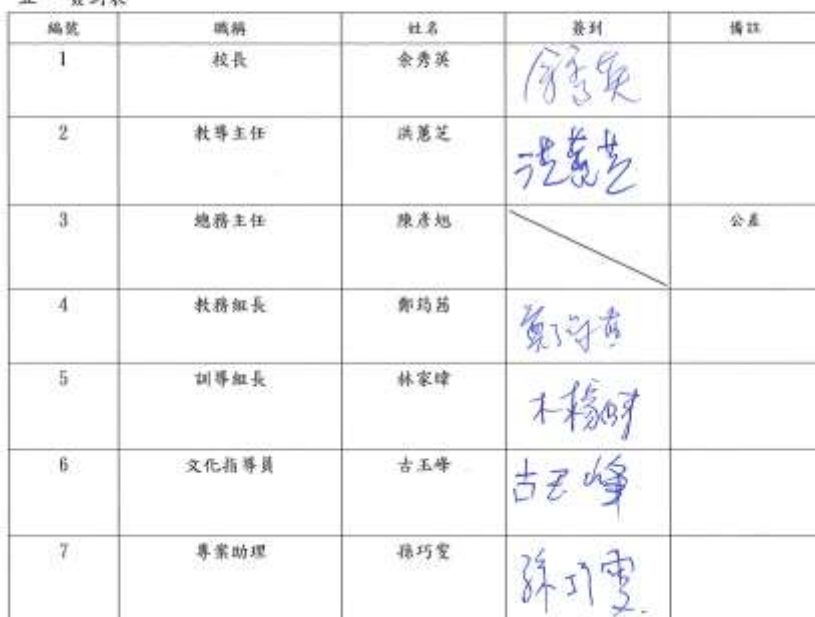 簽到表
編號 職稱 姓名 簽到 備註
1 校長 余秀英 余秀英
2 教導主任 洪蕙芝 洪蕙芝
3 總務主任 陳彥旭 公差
4 教務組長 鄭筠茜
5 訓導組長 林家暐
6 文化指導員 古玉峰 古玉峰
7 專案助理 孫巧雯 孫巧雯